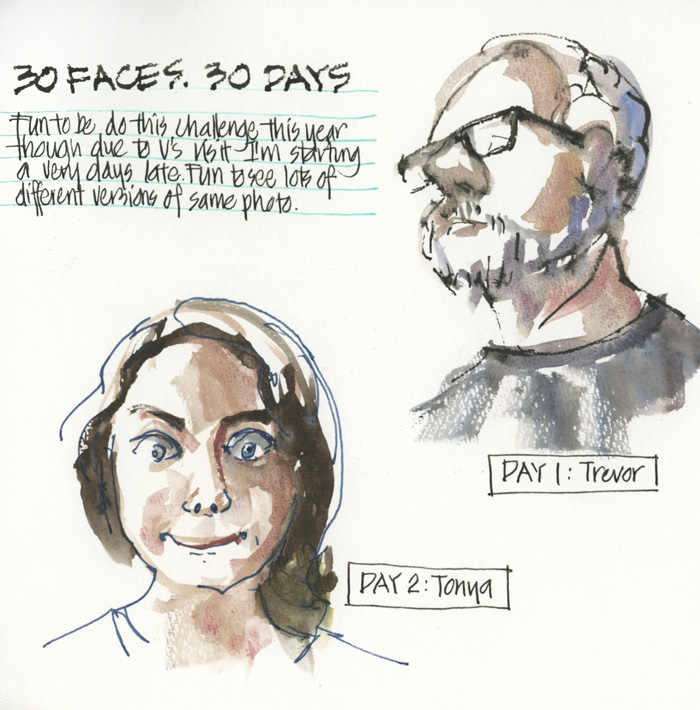 30 FACES. 30 DAYS
Fun to be, do this challenge this year
though due to V's visit I'm starting
a very days late. Fun to see lots of
different versions of same photo.
DAY 1: Trevor
DAY 2: Tonya